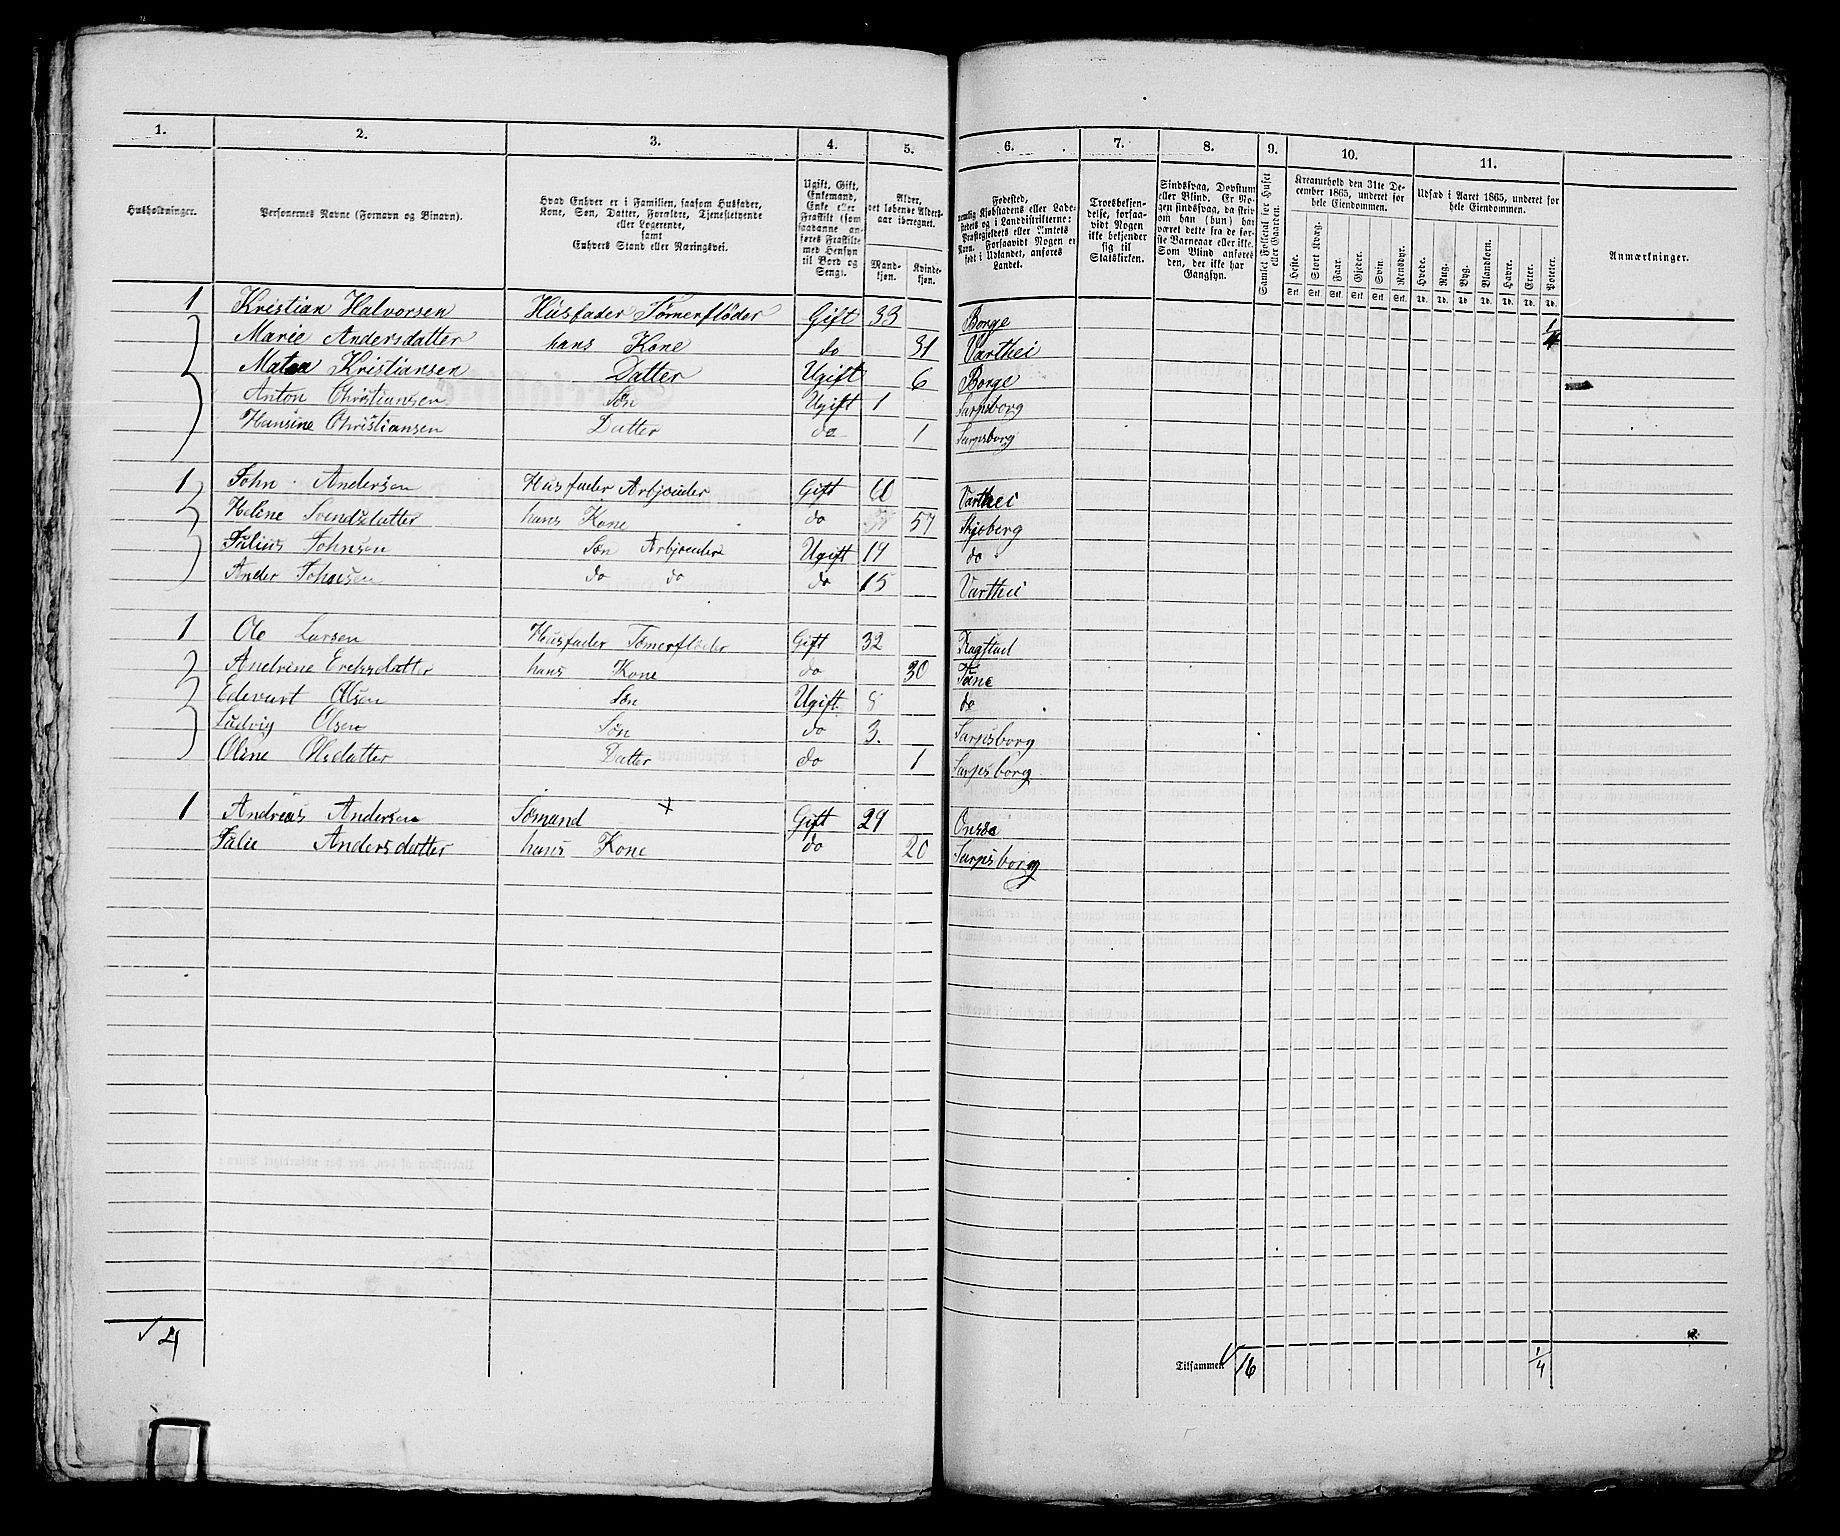 1. 2. 3. 4. 5. 6. 7. 8. 9. 10. 11.
Husholdninger. Personernes Navne (Fornavn og Binavn). Hvad Enhver er i Familien, saasom Husfader, Kone, Søn, Datter, Forældre, Tjenestetyende eller Logerende, samt Enhvers Stand eller Næringsvei. Ugift, Gift, Enkemand, Enke eller Fraskilt (som saadanne anføres Fraskilte med Hensyn til Bord og Seng). Alder, det løbende Alders-aar iberegnet. Mand-kjøn. Kvinde-kjøn.
Fødested, nemlig Kjøbstadens eller Lade-stedets og i Landdistrikterne: Præstegjeldets eller Amtets Navn. Forsaavidt Nogen er født i Udlandet, anføres Landet. Troesbekjen-delse, forsaa-vidt Nogen ikke bekjender sig til Statskirken. Sindssvag, Døvstum eller Blind. Er No-gen sindssvag, da skriv om han (hun) har været dette fra de før-ste Barneaar eller ikke. Som Blind anføres den, der ikke har Gangsyn. Samlet Folketal for Huset eller Gaarden. Kreaturhold den 31te De-cember 1865, underet for hele Eiendommen. Heste. Stort Kvæg. Faar. Gjeder. Svin. Rensdyr. Udsæd i Aaret 1865, underet for hele Eiendommen. Hvede. Rug. Byg. Blandkorn. Havre. Erter. Poteter. Anmærkninger.
Stk. Stk. Stk. Stk. Stk. Stk. Td. Td. Td. Td. Td. Td. Td.
1 Kristian Halvorsen Husfader Tømerfløder Gift 33 Borge 1/4
Marie Andersdatter hans Kone do 31 Varthei
Matea Kristiansen Datter Ugift 6 Borge
Anton Christiansen Søn Ugift 1 Sarpsborg
Hansine Christiansen Datter do 1 Sarpsborg
1 John Andersen Husfader Arbjeider Gift Varthei
Heline Svendsdatter hans Kone do 57 Skjeberg
Julius Johnsen Søn Arbjeider Ugift 19 do
Ander Johnsen do do do 15 Varthei
1 Ole Larsen Husfader Tømerfløder Gift 32 Ragstad
Andrine Ereksdatter hans Kone do 30 Tune
Edevart Olsen Søn Ugift 8 do
Ludvig Olsen Søn do 3. Sarpsborg
Oline Olsdatter Datter do 1 Sarpsborg
1 Andreas Andersen Sømand + Gift 29 Onsøe
Julie Andersdatter hans Kone do 20 Sarpsborg
√ 4 Tilsammen √ 16 1/4